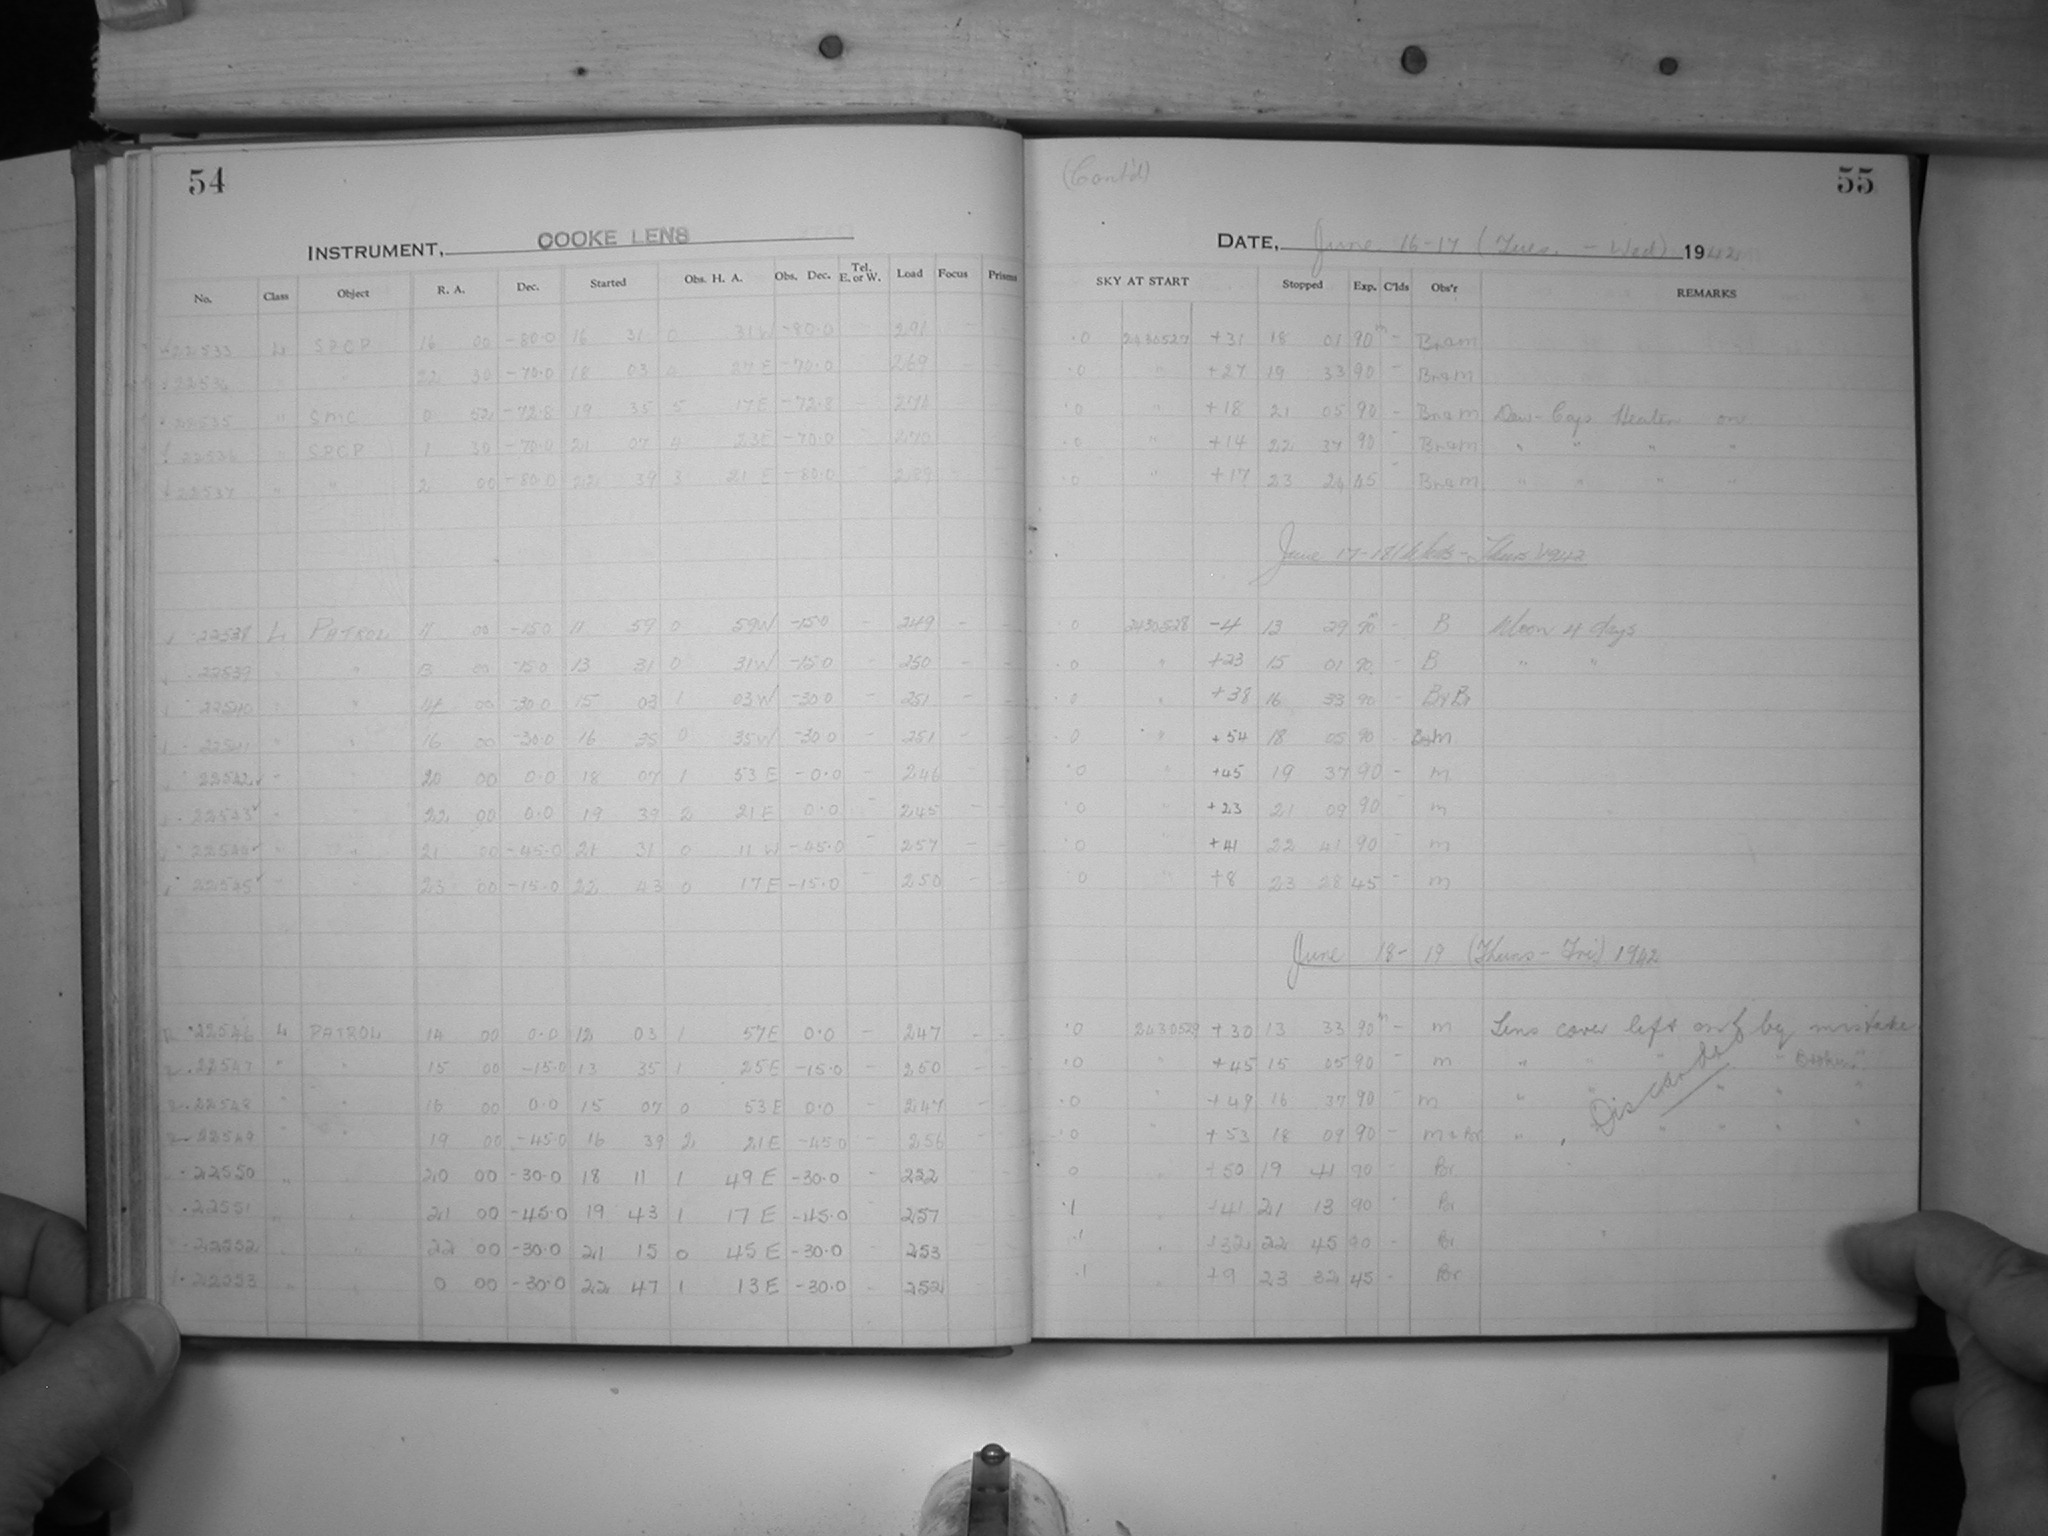 54
INSTRUMENT, COOKE LENS
No. Class Object R. A. Dec. Started Obs. H. A. Obs. Dec. Tel. E. or W. Load Focus Prisms
22533 L SPCP 16 00 -80.0 16 31 0 31W -80.0 - 291 -
" " 22 30 -70.0 18 03 27E -70.0 269
22535 " SMC 0 52 -72.8 19 35 5 17E -72.8
22536 " SPCP 1 30 -70.0 21 07 4 23E -70.0
22537 " " 2 00 -80.0 22 39 3 21 E -80.0 289
22538 L PATROL 11 00 -15.0 11 59 0 59W -15.0 - 249 -
22539 " 13 00 -15.0 13 31 0 31W -15.0 - 250 -
22540 " 14 00 -30.0 15 03 1 03W -30.0 - 251 -
22541 " 16 00 -30.0 16 35 0 35W -30.0 - 251 -
22542 " 20 00 0.0 18 07 1 53 E -0.0 - 246
22543 " 22 00 0.0 19 39 2 21 E 0.0 - 245 -
22544 " 21 00 -45.0 21 31 0 11 W -45.0 - 257 -
22545 " 23 00 -15.0 22 43 0 17E -15.0 - 250 -
22546 L PATROL 14 00 0.0 12 03 1 57E 0.0 - 247 -
22547 " " 15 00 -15.0 13 35 1 25E -15.0 - 250 -
22548 " " 16 00 0.0 15 07 0 53E 0.0 - 247 -
22549 " " 19 00 -45.0 16 39 2 21E -45.0 - 256
22550 " 20 00 -30.0 18 11 1 49 E -30.0 - 222
22551 " " 21 00 -45.0 19 43 1 17 E -45.0 - 257
22552 " " 22 00 -30.0 21 15 0 45 E -30.0 - 253
22553 " " 0 00 -30.0 22 47 1 13 E -30.0 - 252
(Cont'd) 55
DATE, June 16-17 (Tues. - Wed) 1942
SKY AT START Stopped Exp. C'lds Obs'r REMARKS
.0 2430527 +31 18 01 90m - BramM
.0 " +27 19 33 90 - BramM
.0 " +18 21 05 90 - BramM Dew-Cap Heater on
.0 " +14 22 37 90 - BramM " " " "
.0 " +17 23 24 45 - BramM " " " "
June 17-18 (Weds - Thurs) 1942
.0 2430528 -4 13 29 90m - B Moon 4 days
.0 " +23 15 01 90 - B " "
.0 " +38 16 33 90 - BrBr
.0 " +54 18 05 90 -
.0 " +45 19 37 90 - m
.0 " +23 21 09 90 - m
.0 " +41 22 41 90 - m
.0 " +8 23 28 45 - m
June 18-19 (Thurs - Fri) 1942
.0 2430529 +30 13 33 90m - m Lens cover left on by mistake
.0 " +45 15 05 90 - m " " " "
.0 " +49 16 37 90 - m " " " " "
Discarded
.0 " +53 18 09 90 - " " " " "
0 " +50 19 41 90 - Br
.1 " +41 21 13 90 - Br
.1 " +32 22 45 90 - Br
.1 " +9 23 32 45 - Br